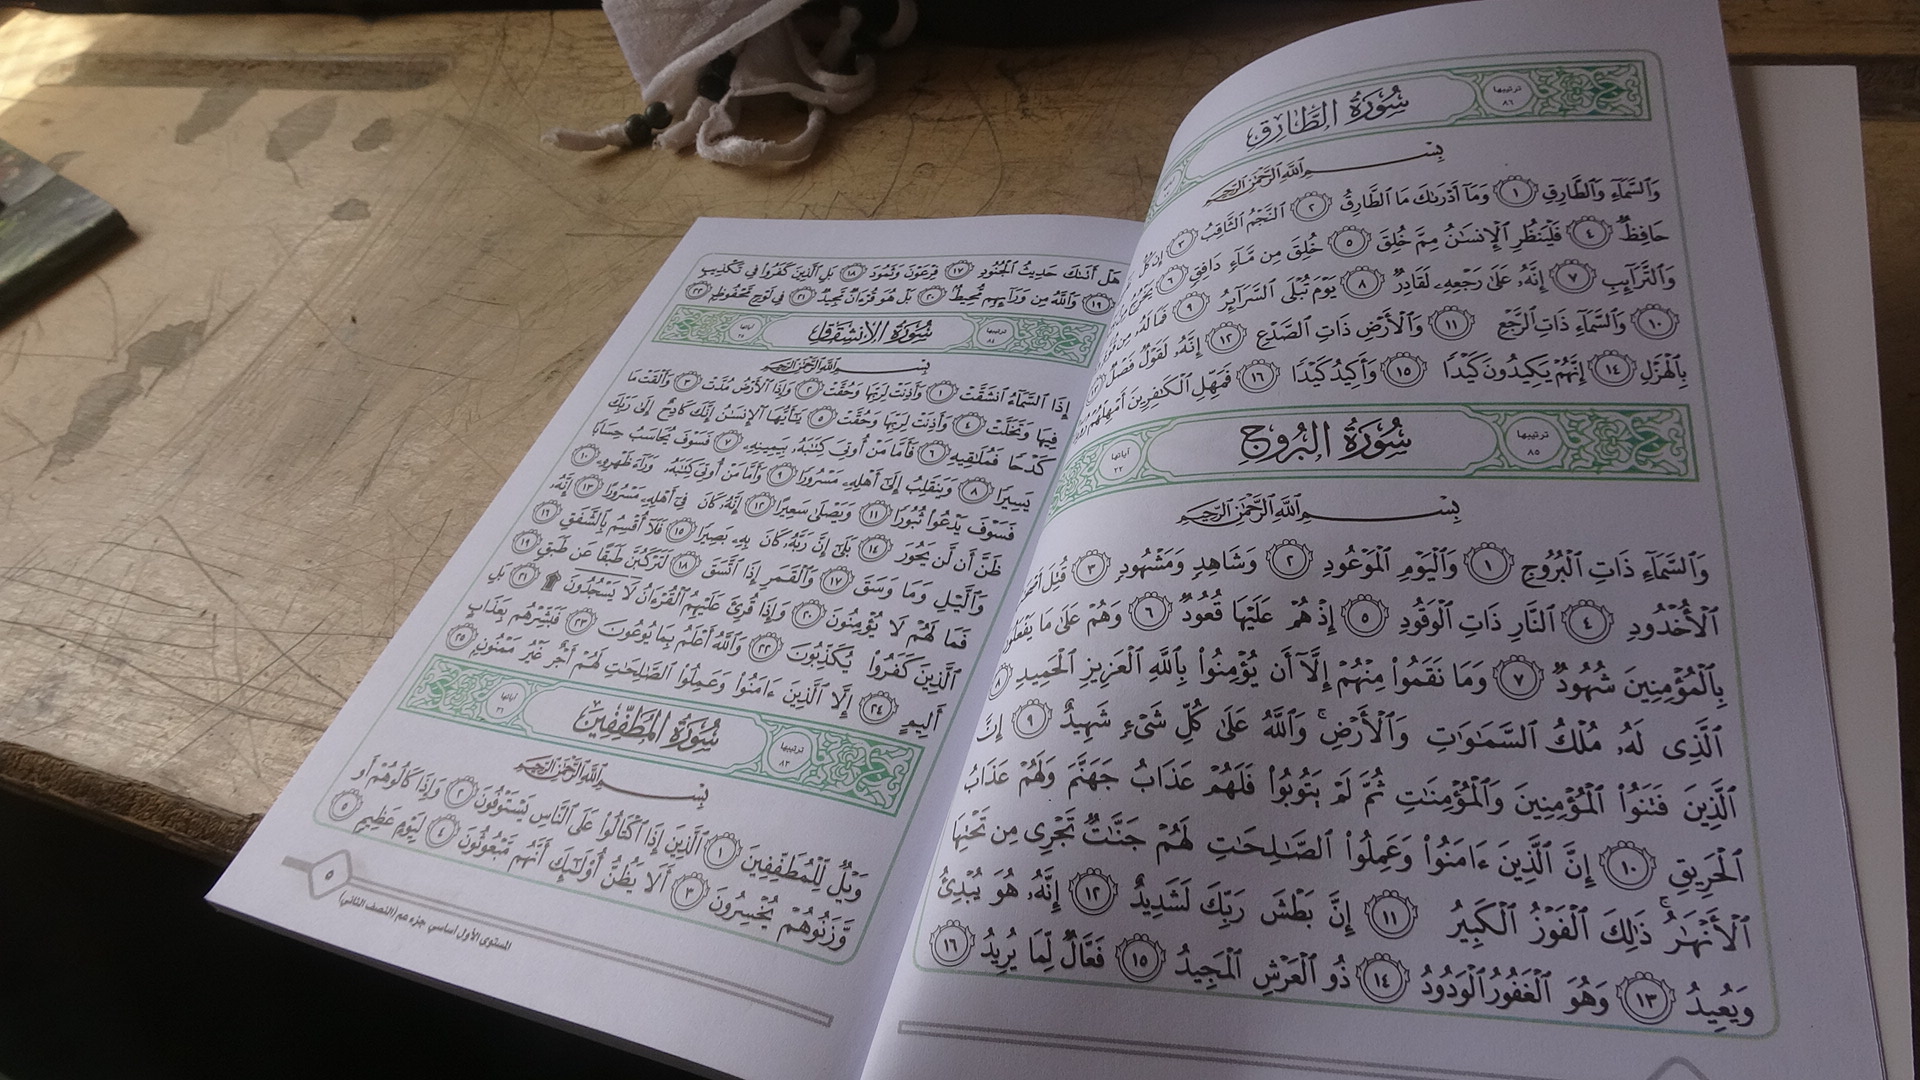 سُورَةُ الطَّارِقِ
ترتيبها
٨٦
بِسْـــمِ ٱللَّهِ ٱلرَّحْمَٰنِ ٱلرَّحِيمِ
وَٱلسَّمَآءِ وَٱلطَّارِقِ ١ وَمَآ أَدْرَىٰكَ مَا ٱلطَّارِقُ ٢ ٱلنَّجْمُ ٱلثَّاقِبُ ٣ إِن كُلُّ
حَافِظٌ ٤ فَلْيَنظُرِ ٱلْإِنسَٰنُ مِمَّ خُلِقَ ٥ خُلِقَ مِن مَّآءٍ دَافِقٍ ٦ يَخْرُجُ
وَٱلتَّرَآئِبِ ٧ إِنَّهُۥ عَلَىٰ رَجْعِهِۦ لَقَادِرٌ ٨ يَوْمَ تُبْلَى ٱلسَّرَآئِرُ ٩ فَمَا لَهُۥ مِن قُوَّةٍ
١٠ وَٱلسَّمَآءِ ذَاتِ ٱلرَّجْعِ ١١ وَٱلْأَرْضِ ذَاتِ ٱلصَّدْعِ ١٢ إِنَّهُۥ لَقَوْلٌ فَصْلٌ ١٣
بِٱلْهَزْلِ ١٤ إِنَّهُمْ يَكِيدُونَ كَيْدًا ١٥ وَأَكِيدُ كَيْدًا ١٦ فَمَهِّلِ ٱلْكَٰفِرِينَ أَمْهِلْهُمْ
سُورَةُ البُرُوجِ
ترتيبها
٨٥
آياتها
٢٢
بِسْـــمِ ٱللَّهِ ٱلرَّحْمَٰنِ ٱلرَّحِيمِ
وَٱلسَّمَآءِ ذَاتِ ٱلْبُرُوجِ ١ وَٱلْيَوْمِ ٱلْمَوْعُودِ ٢ وَشَاهِدٍ وَمَشْهُودٍ ٣ قُتِلَ
ٱلْأُخْدُودِ ٤ ٱلنَّارِ ذَاتِ ٱلْوَقُودِ ٥ إِذْ هُمْ عَلَيْهَا قُعُودٌ ٦ وَهُمْ عَلَىٰ مَا يَفْعَلُونَ
بِٱلْمُؤْمِنِينَ شُهُودٌ ٧ وَمَا نَقَمُوا۟ مِنْهُمْ إِلَّآ أَن يُؤْمِنُوا۟ بِٱللَّهِ ٱلْعَزِيزِ ٱلْحَمِيدِ ٨
ٱلَّذِى لَهُۥ مُلْكُ ٱلسَّمَٰوَٰتِ وَٱلْأَرْضِ ۚ وَٱللَّهُ عَلَىٰ كُلِّ شَىْءٍ شَهِيدٌ ٩ إِنَّ
ٱلَّذِينَ فَتَنُوا۟ ٱلْمُؤْمِنِينَ وَٱلْمُؤْمِنَٰتِ ثُمَّ لَمْ يَتُوبُوا۟ فَلَهُمْ عَذَابُ جَهَنَّمَ وَلَهُمْ عَذَابُ
ٱلْحَرِيقِ ١٠ إِنَّ ٱلَّذِينَ ءَامَنُوا۟ وَعَمِلُوا۟ ٱلصَّٰلِحَٰتِ لَهُمْ جَنَّٰتٌ تَجْرِى مِن تَحْتِهَا
ٱلْأَنْهَٰرُ ۚ ذَٰلِكَ ٱلْفَوْزُ ٱلْكَبِيرُ ١١ إِنَّ بَطْشَ رَبِّكَ لَشَدِيدٌ ١٢ إِنَّهُۥ هُوَ يُبْدِئُ
وَيُعِيدُ ١٣ وَهُوَ ٱلْغَفُورُ ٱلْوَدُودُ ١٤ ذُو ٱلْعَرْشِ ٱلْمَجِيدُ ١٥ فَعَّالٌ لِّمَا يُرِيدُ ١٦
هَلْ أَتَىٰكَ حَدِيثُ ٱلْجُنُودِ ١٧ فِرْعَوْنَ وَثَمُودَ ١٨ بَلِ ٱلَّذِينَ كَفَرُوا۟ فِى تَكْذِيبٍ
١٩ وَٱللَّهُ مِن وَرَآئِهِم مُّحِيطٌ ٢٠ بَلْ هُوَ قُرْءَانٌ مَّجِيدٌ ٢١ فِى لَوْحٍ مَّحْفُوظٍ ٢٢
سُورَةُ الانشِقَاقِ
ترتيبها
٨٤
آياتها
٢٥
بِسْـــمِ ٱللَّهِ ٱلرَّحْمَٰنِ ٱلرَّحِيمِ
إِذَا ٱلسَّمَآءُ ٱنشَقَّتْ ١ وَأَذِنَتْ لِرَبِّهَا وَحُقَّتْ ٢ وَإِذَا ٱلْأَرْضُ مُدَّتْ ٣ وَأَلْقَتْ مَا
فِيهَا وَتَخَلَّتْ ٤ وَأَذِنَتْ لِرَبِّهَا وَحُقَّتْ ٥ يَٰٓأَيُّهَا ٱلْإِنسَٰنُ إِنَّكَ كَادِحٌ إِلَىٰ رَبِّكَ
كَدْحًا فَمُلَٰقِيهِ ٦ فَأَمَّا مَنْ أُوتِىَ كِتَٰبَهُۥ بِيَمِينِهِۦ ٧ فَسَوْفَ يُحَاسَبُ حِسَابًا
يَسِيرًا ٨ وَيَنقَلِبُ إِلَىٰٓ أَهْلِهِۦ مَسْرُورًا ٩ وَأَمَّا مَنْ أُوتِىَ كِتَٰبَهُۥ وَرَآءَ ظَهْرِهِۦ ١٠
فَسَوْفَ يَدْعُوا۟ ثُبُورًا ١١ وَيَصْلَىٰ سَعِيرًا ١٢ إِنَّهُۥ كَانَ فِىٓ أَهْلِهِۦ مَسْرُورًا ١٣ إِنَّهُۥ
ظَنَّ أَن لَّن يَحُورَ ١٤ بَلَىٰٓ إِنَّ رَبَّهُۥ كَانَ بِهِۦ بَصِيرًا ١٥ فَلَآ أُقْسِمُ بِٱلشَّفَقِ ١٦
وَٱلَّيْلِ وَمَا وَسَقَ ١٧ وَٱلْقَمَرِ إِذَا ٱتَّسَقَ ١٨ لَتَرْكَبُنَّ طَبَقًا عَن طَبَقٍ ١٩
فَمَا لَهُمْ لَا يُؤْمِنُونَ ٢٠ وَإِذَا قُرِئَ عَلَيْهِمُ ٱلْقُرْءَانُ لَا يَسْجُدُونَ ۩ ٢١ بَلِ
ٱلَّذِينَ كَفَرُوا۟ يُكَذِّبُونَ ٢٢ وَٱللَّهُ أَعْلَمُ بِمَا يُوعُونَ ٢٣ فَبَشِّرْهُم بِعَذَابٍ
أَلِيمٍ ٢٤ إِلَّا ٱلَّذِينَ ءَامَنُوا۟ وَعَمِلُوا۟ ٱلصَّٰلِحَٰتِ لَهُمْ أَجْرٌ غَيْرُ مَمْنُونٍ ٢٥
سُورَةُ المُطَفِّفِينَ
ترتيبها
٨٣
آياتها
٣٦
بِسْـــمِ ٱللَّهِ ٱلرَّحْمَٰنِ ٱلرَّحِيمِ
وَيْلٌ لِّلْمُطَفِّفِينَ ١ ٱلَّذِينَ إِذَا ٱكْتَالُوا۟ عَلَى ٱلنَّاسِ يَسْتَوْفُونَ ٢ وَإِذَا كَالُوهُمْ أَو
وَّزَنُوهُمْ يُخْسِرُونَ ٣ أَلَا يَظُنُّ أُو۟لَٰٓئِكَ أَنَّهُم مَّبْعُوثُونَ ٤ لِيَوْمٍ عَظِيمٍ ٥
٥
المستوى الأول أساسي جزء عم (النصف الثاني)